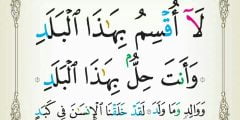 لَآ أُقْسِمُ بِهَٰذَا ٱلْبَلَدِ
وَأَنتَ حِلٌّۢ بِهَٰذَا ٱلْبَلَدِ
وَوَالِدٍ وَمَا وَلَدَ لَقَدْ خَلَقْنَا ٱلْإِنسَٰنَ فِى كَبَدٍ